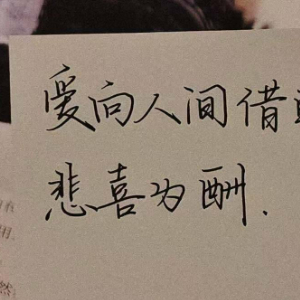 爱向人间借
悲喜为酬.